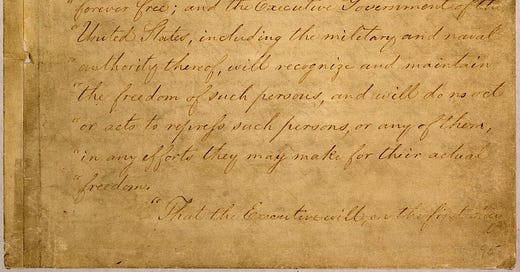 "forever free; and the Executive Government of the
"United States, including the military and naval
"authority thereof, will recognize and maintain
"the freedom of such persons, and will do no act
"or acts to repress such persons, or any of them,
"in any efforts they may make for their actual
"freedom.
"That the Executive will, on the first day